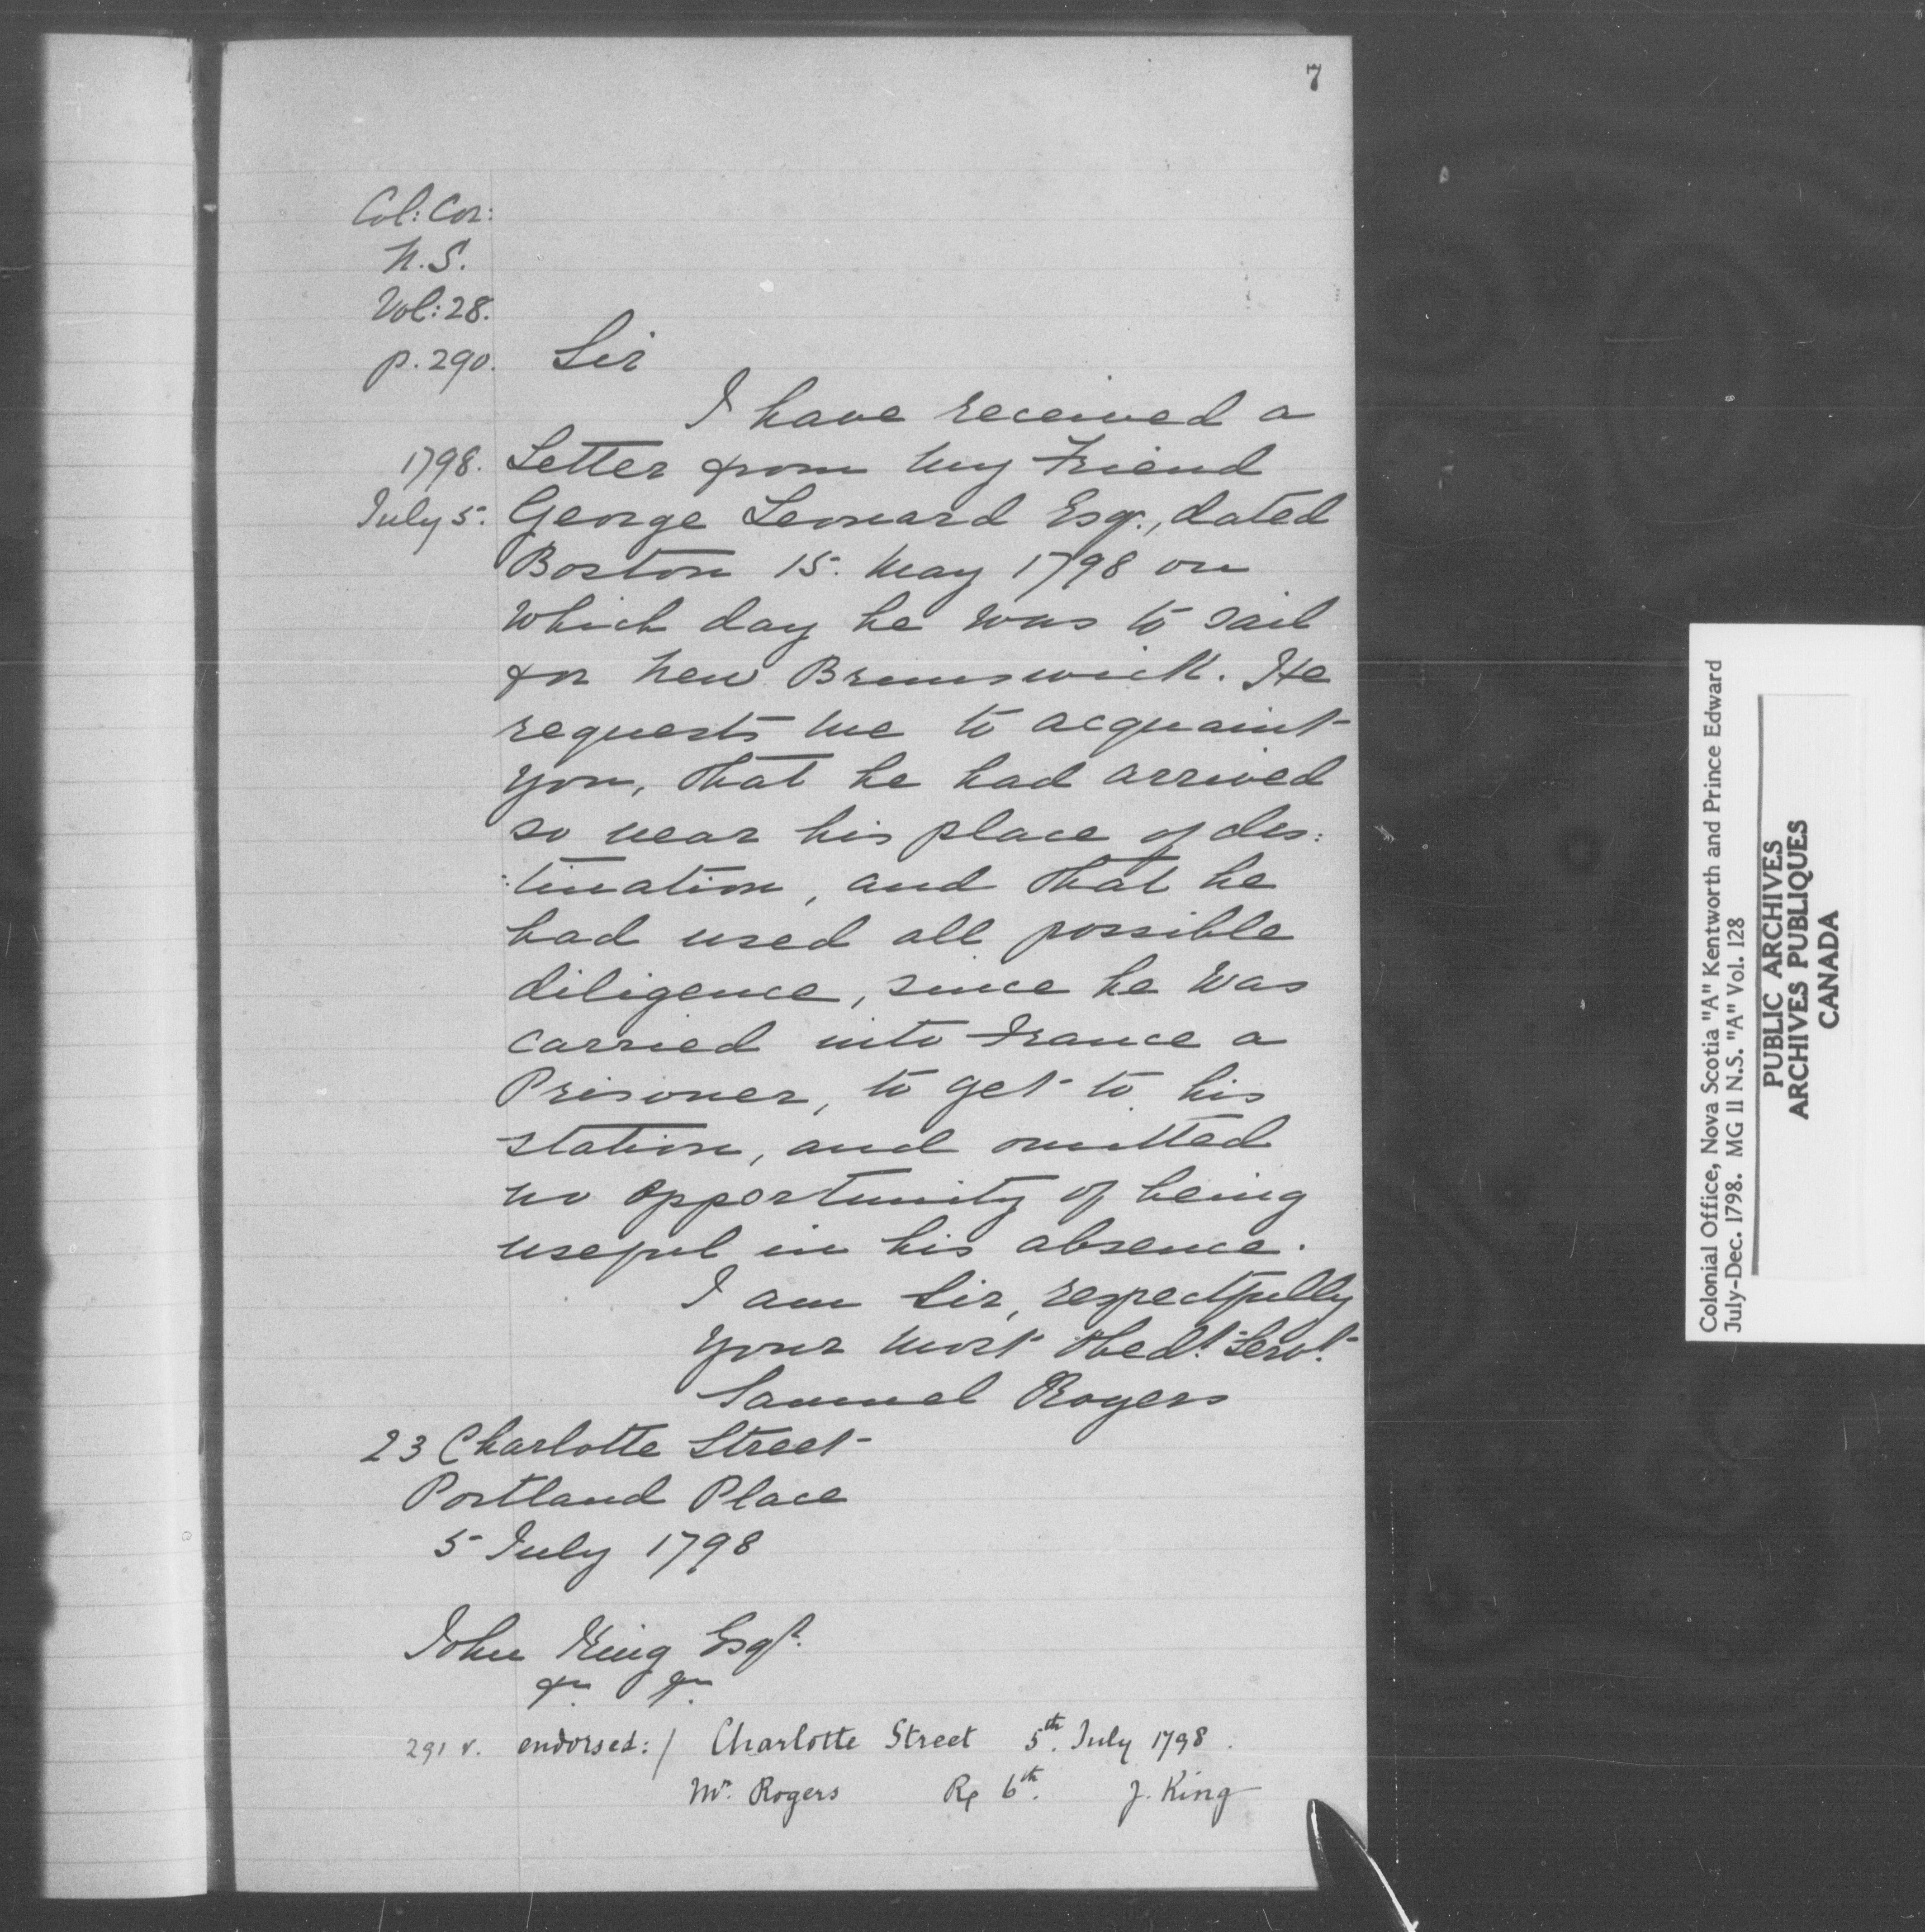 7
Col: Cor:
N.S.
Vol: 28.
p. 290.
Sir
I have received a
1798. Letter from my Friend
July 5. George Leonard Esqr., dated
Boston 15. May 1798 on
which day he was to sail
for New Brunswick. He
requests me to acquaint
you, that he had arrived
so near his place of des:
:tination, and that he
had used all possible
diligence, since he was
carried into France a
Prisoner, to get to his
station, and omitted
no opportunity of being
useful in his absence.
I am Sir, respectfully
your most Obedt. Servt.
Samuel Rogers
23 Charlotte Street
Portland Place
5 July 1798
John King Esqr.
291 v. endorsed: / Charlotte Street 5th. July 1798.
Mr. Rogers Rx 6th. J. King
Colonial Office, Nova Scotia "A" Kentworth and Prince Edward
July-Dec. 1798. MG II N.S. "A" Vol. 128
PUBLIC ARCHIVES
ARCHIVES PUBLIQUES
CANADA